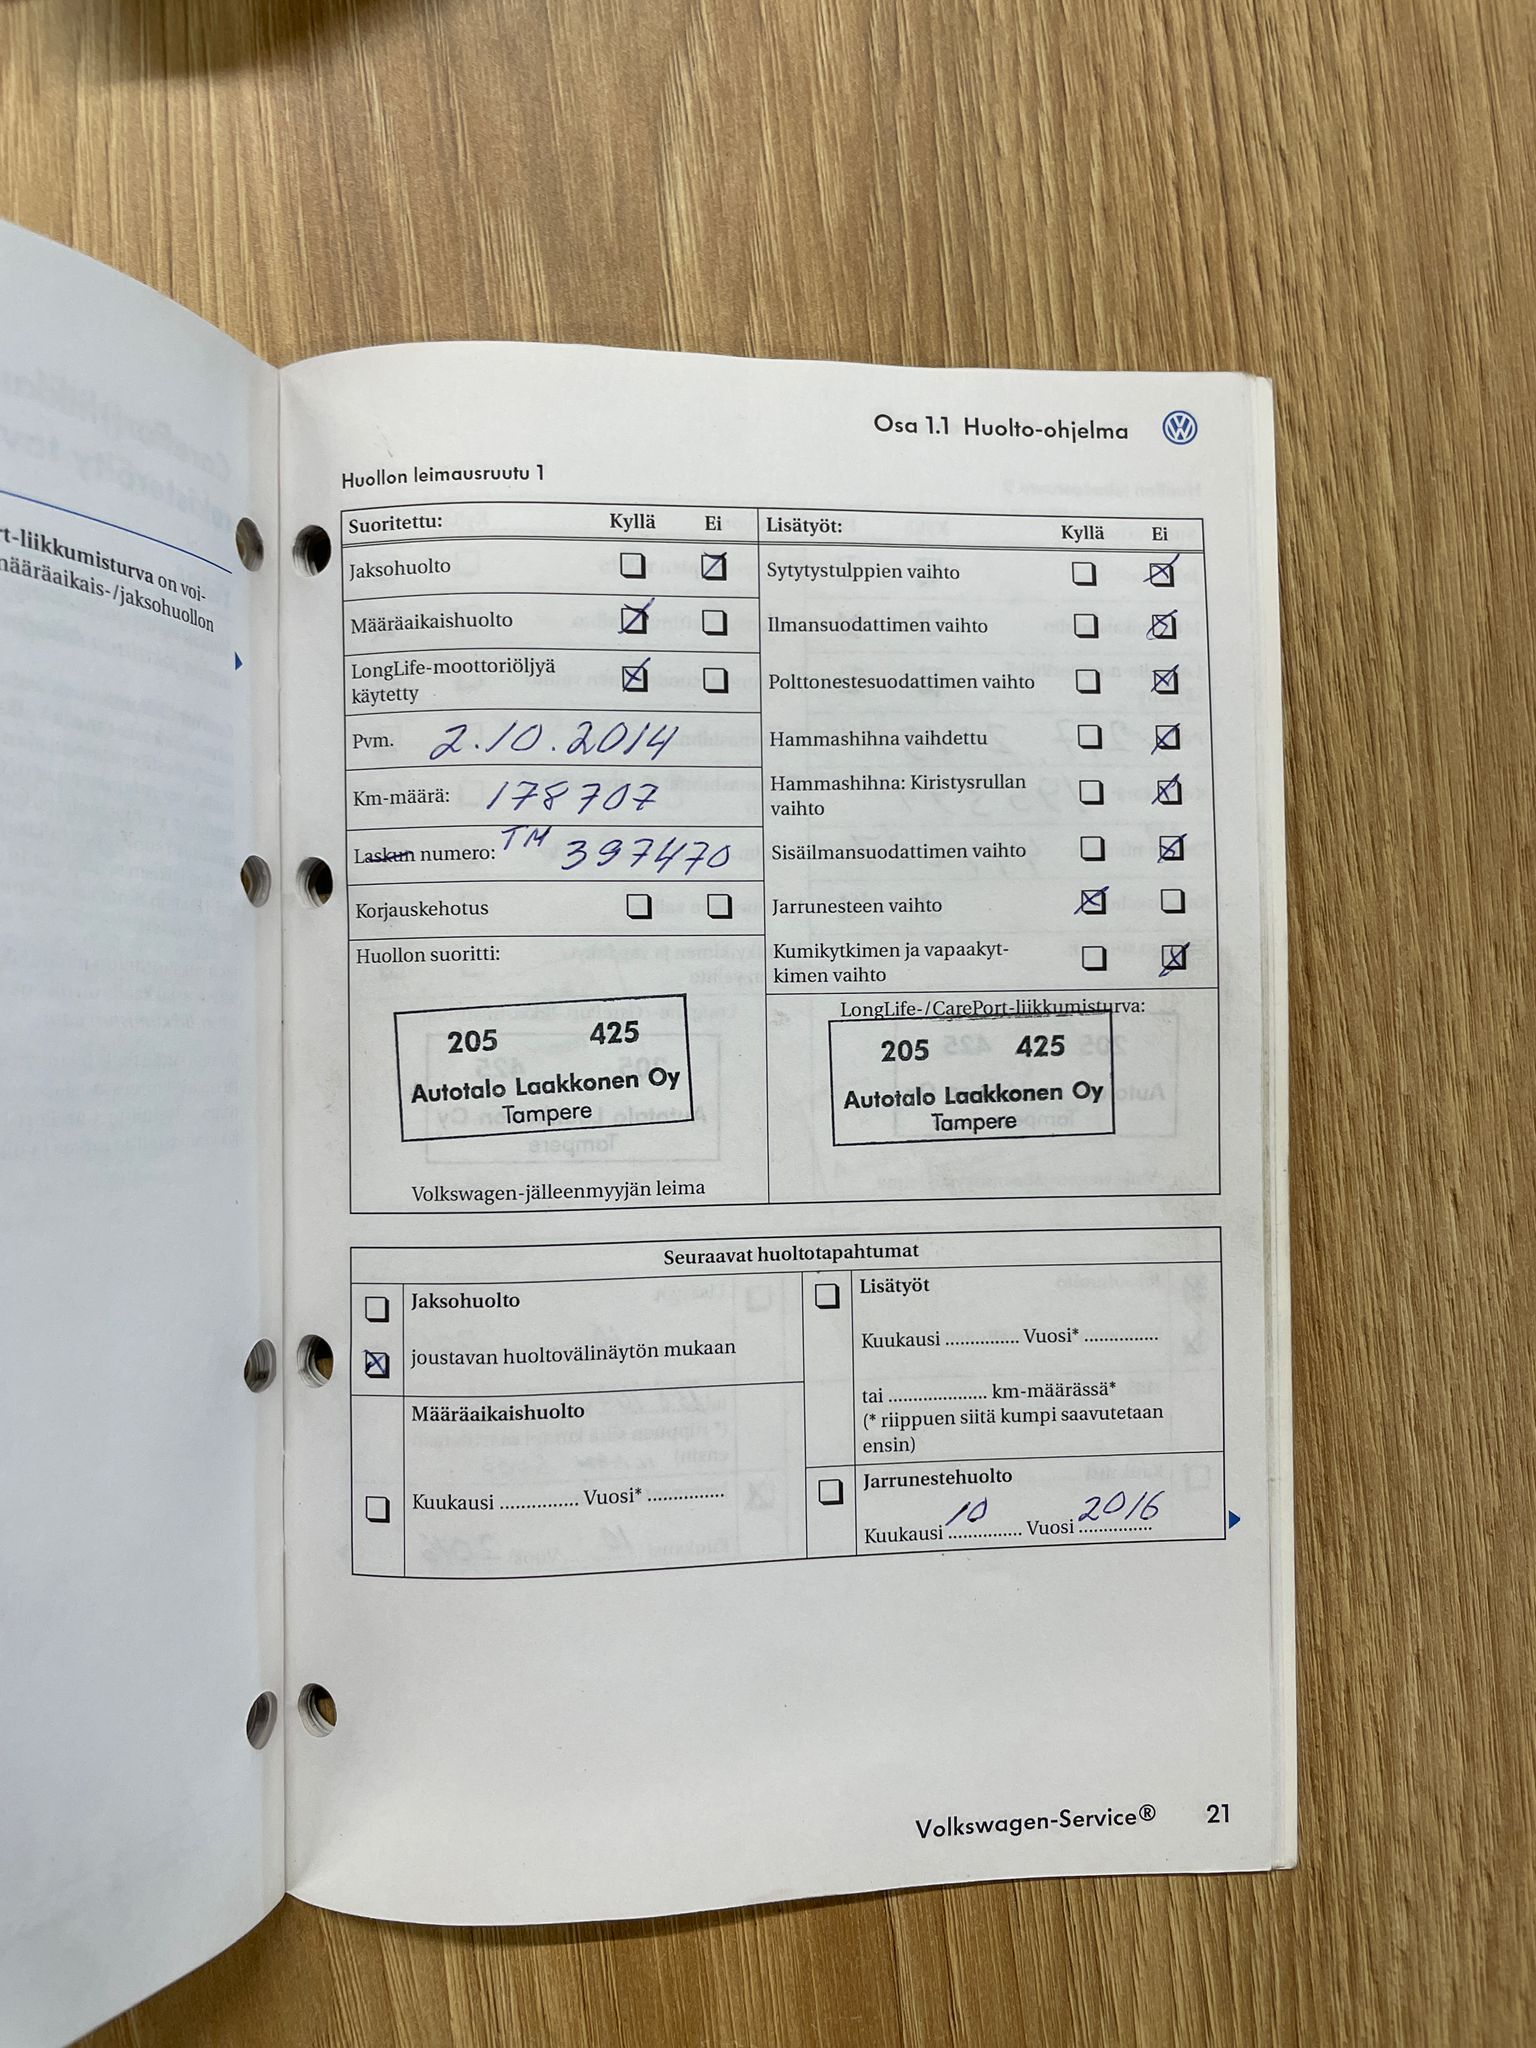 rt-liikkumisturva on voi-
määräaikais-/jaksohuollon
Osa 1.1 Huolto-ohjelma
Huollon leimausruutu 1
Suoritettu: Kyllä Ei
Jaksohuolto
Määräaikaishuolto
LongLife-moottoriöljyä
käytetty
Pvm. 2.10.2014
Km-määrä: 178707
Laskun numero: TM 397470
Korjauskehotus
Huollon suoritti:
205 425
Autotalo Laakkonen Oy
Tampere
Volkswagen-jälleenmyyjän leima
Lisätyöt: Kyllä Ei
Sytytystulppien vaihto
Ilmansuodattimen vaihto
Polttonestesuodattimen vaihto
Hammashihna vaihdettu
Hammashihna: Kiristysrullan
vaihto
Sisäilmansuodattimen vaihto
Jarrunesteen vaihto
Kumikytkimen ja vapaakyt-
kimen vaihto
LongLife-/CarePort-liikkumisturva:
205 425
Autotalo Laakkonen Oy
Tampere
Seuraavat huoltotapahtumat
Jaksohuolto
joustavan huoltovälinäytön mukaan
Määräaikaishuolto
Kuukausi ............... Vuosi* ...............
Lisätyöt
Kuukausi ............... Vuosi* ...............
tai .................... km-määrässä*
(* riippuen siitä kumpi saavutetaan
ensin)
Jarrunestehuolto
Kuukausi 10 Vuosi 2016
Volkswagen-Service® 21